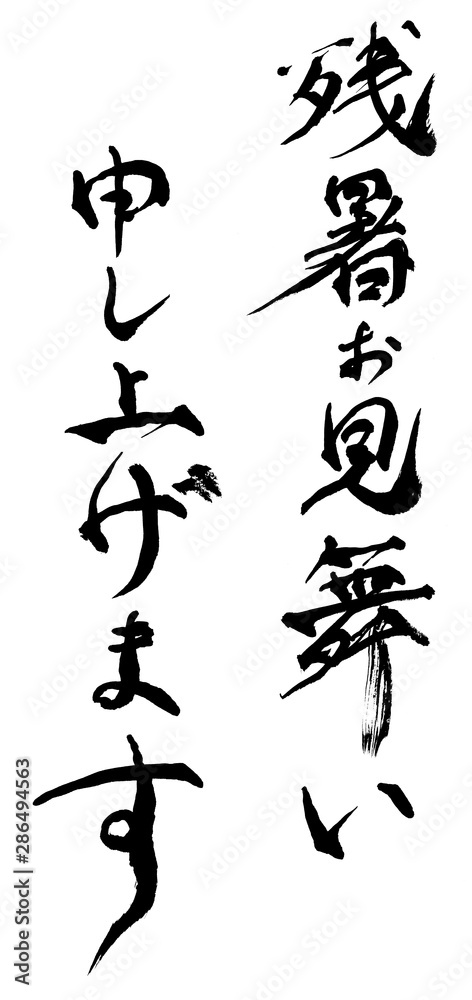 残暑お見舞い
申し上げます
Adobe Stock
#286494563